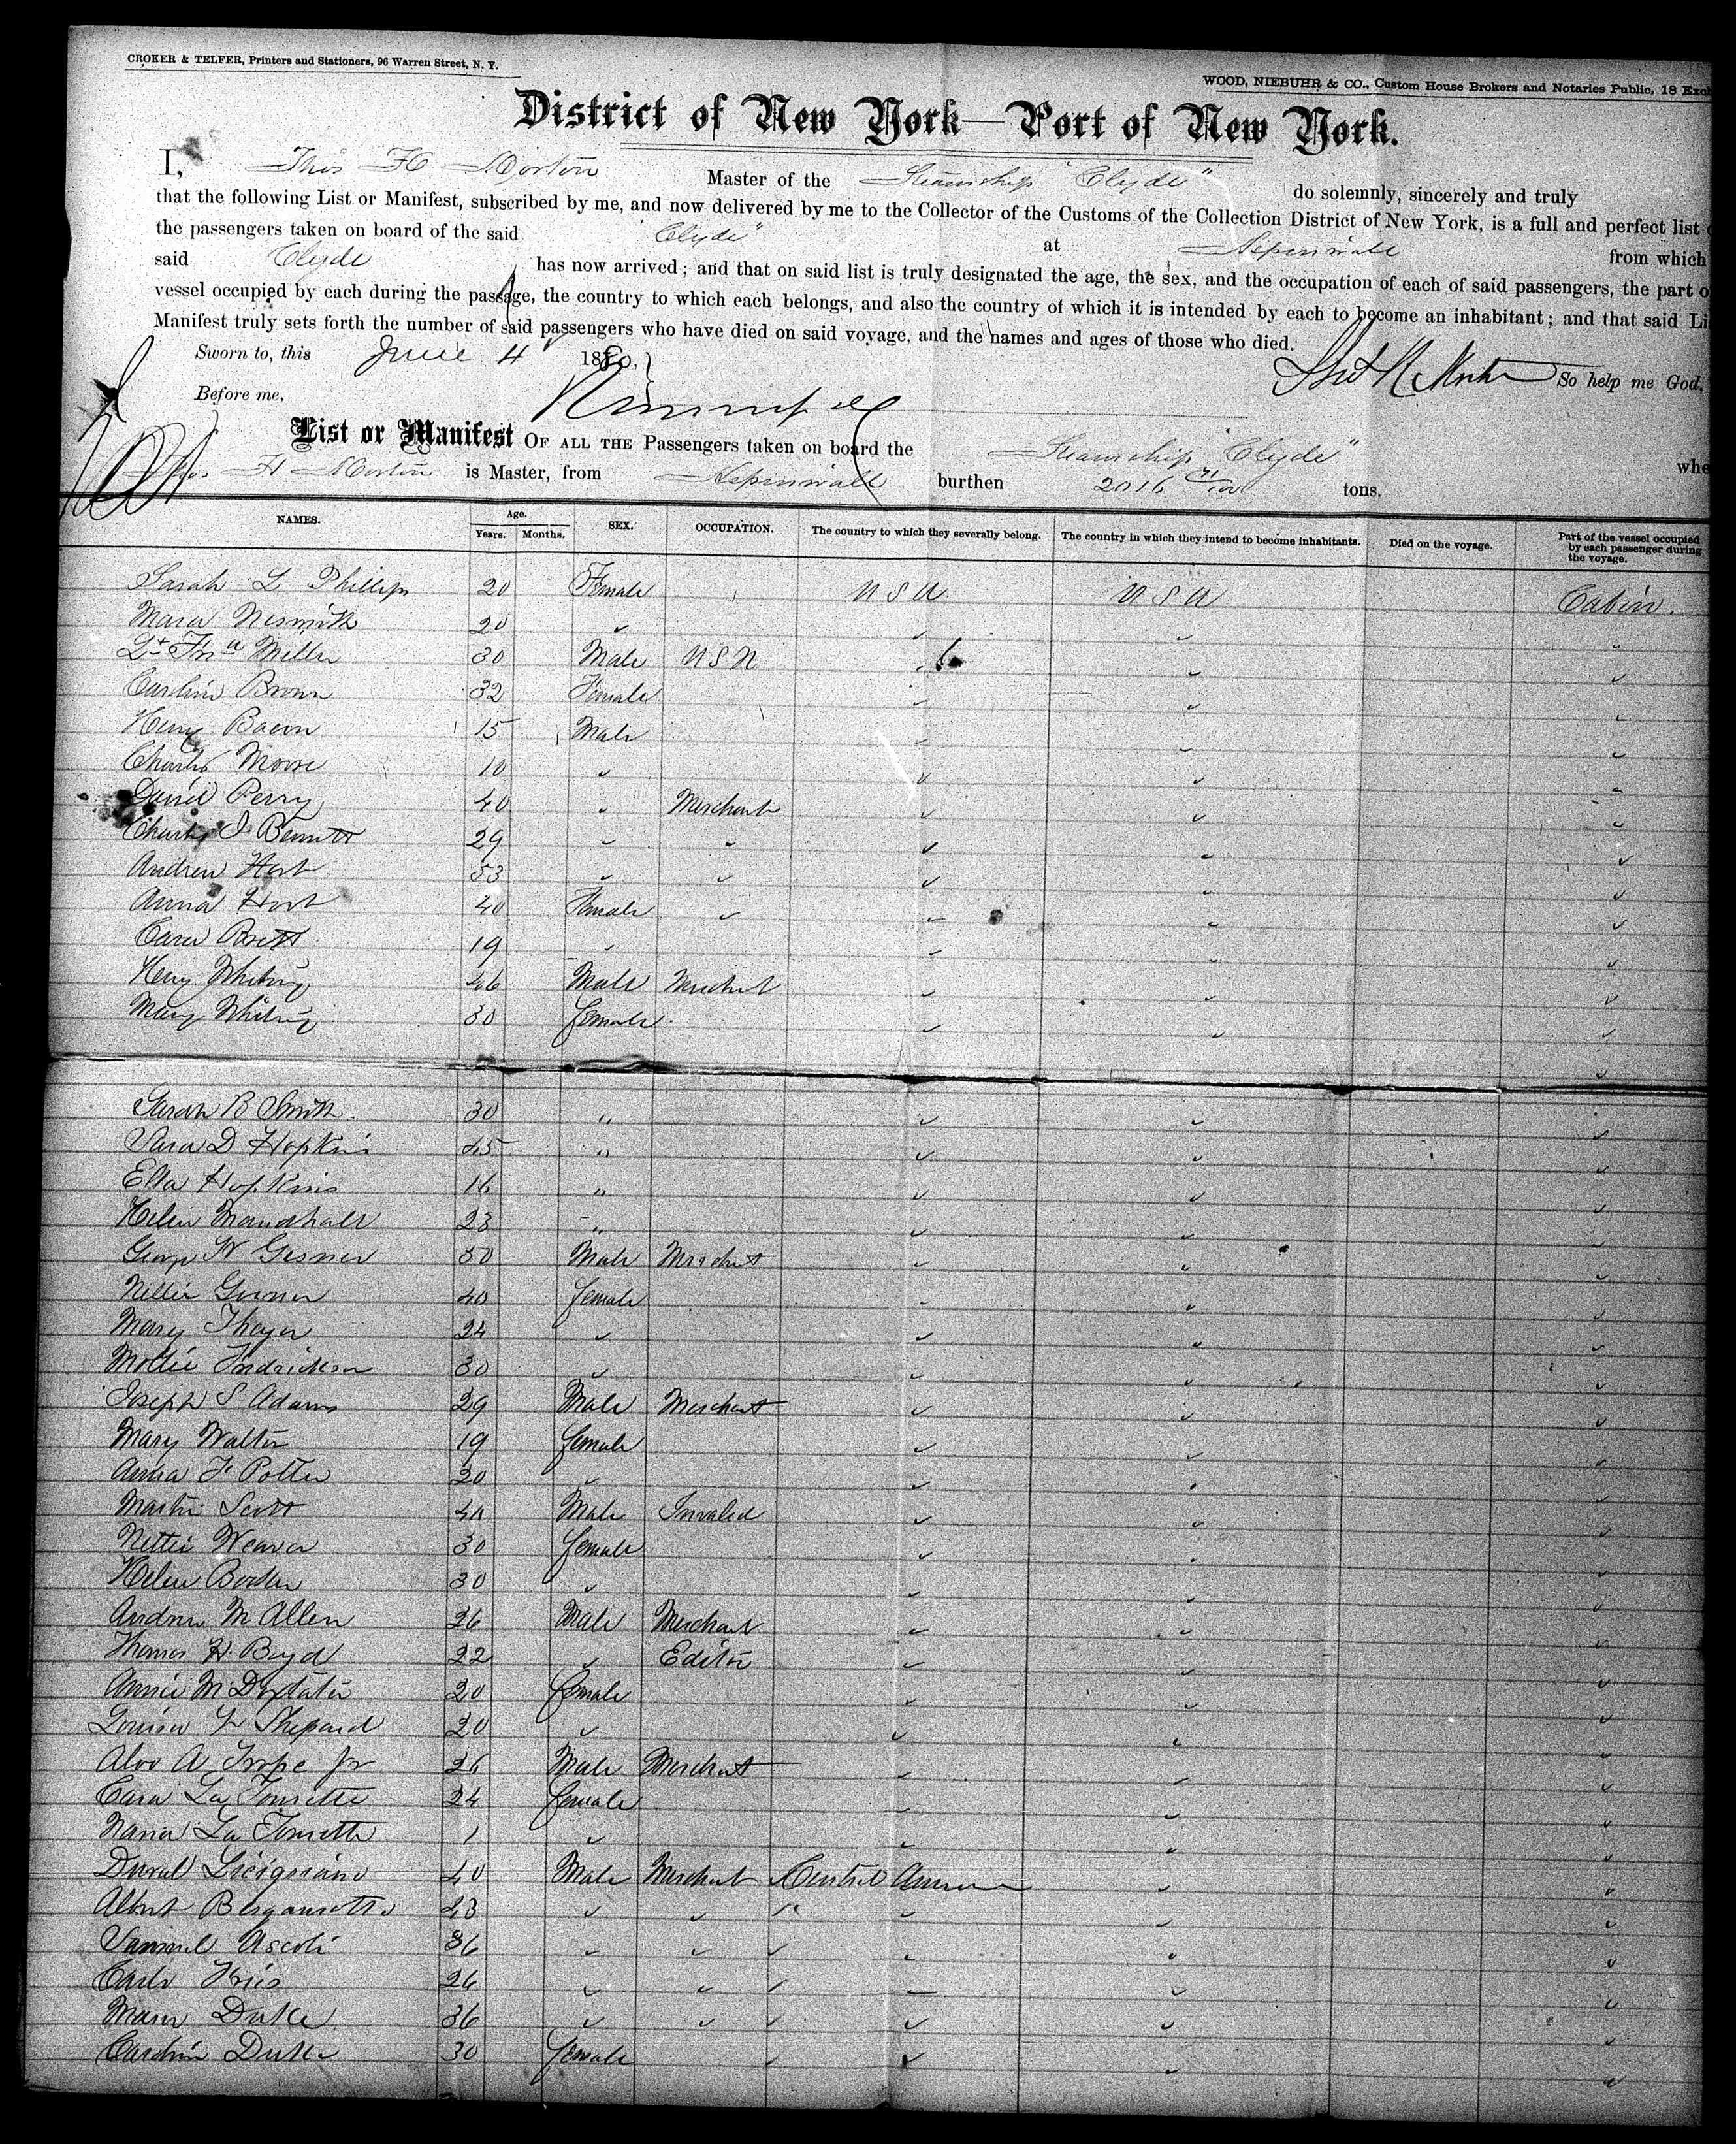 CROKER & TELFER, Printers and Stationers, 96 Warren Street, N. Y.
WOOD, NIEBUHR & CO., Custom House Brokers and Notaries Public, 18 Exch
District of New York—Port of New York.
I, Thos H Morton Master of the Steamship "Clyde" do solemnly, sincerely and truly
that the following List or Manifest, subscribed by me, and now delivered by me to the Collector of the Customs of the Collection District of New York, is a full and perfect list
the passengers taken on board of the said "Clyde" at Aspinwall from which
said Clyde has now arrived; and that on said list is truly designated the age, the sex, and the occupation of each of said passengers, the part o
vessel occupied by each during the passage, the country to which each belongs, and also the country of which it is intended by each to become an inhabitant; and that said Li
Manifest truly sets forth the number of said passengers who have died on said voyage, and the names and ages of those who died.
Sworn to, this June 4 1880. So help me God,
Before me,
List or Manifest OF ALL THE Passengers taken on board the Steamship "Clyde" whe
Thos. H Morton is Master, from Aspinwall burthen 2016 71/100 tons.
NAMES. Age. Years. Months. SEX. OCCUPATION. The country to which they severally belong. The country in which they intend to become inhabitants. Died on the voyage. Part of the vessel occupied by each passenger during the voyage.
Sarah L Phillips 20 Female U S A U S A Cabin.
Mara Nesmith 20 "
Lt Frs Miller 30 Male U S N
Carline Brown 32 Female
Henry Bacon 15 Male
Charles Moore 10 "
David Perry 40 " Merchant
Charles J. Bennett 29 " "
Andrew Hart 53 " "
Anna Hart 40 Female "
Brett 19 "
Henry Whiting 46 Male Merchant
Mary Whiting 30 female
Sarah B Smith 30 "
Sara D Hopkins 45 "
Ella Hopkins 16 "
Helen 23 "
George W Gesner 50 Male Merchant
Nellie Gesner 40 female
Mary Thayer 24 "
Mollie Fredrickson 30 "
Joseph S Adams 29 Male Merchant
Mary Walter 19 female
Anna F Potter 20 "
Martin Scott 40 Male Invalid
Nettie Weaver 30 female
Helen 30 "
Andrew M Allen 26 Male Merchant
Thomas H. Boyd 22 " Editor
Annie M 20 female
Louisa Shepard 20 "
A Jr 26 Male Merchant
Cara La Tourette 24 female
La Tourette 1 "
40 Male Merchant Central America
Albert 43 " " "
Samuel Ascoli 36 " " "
Carlo 26 " " "
Duke 36 " " "
Carolin Duke 30 female "